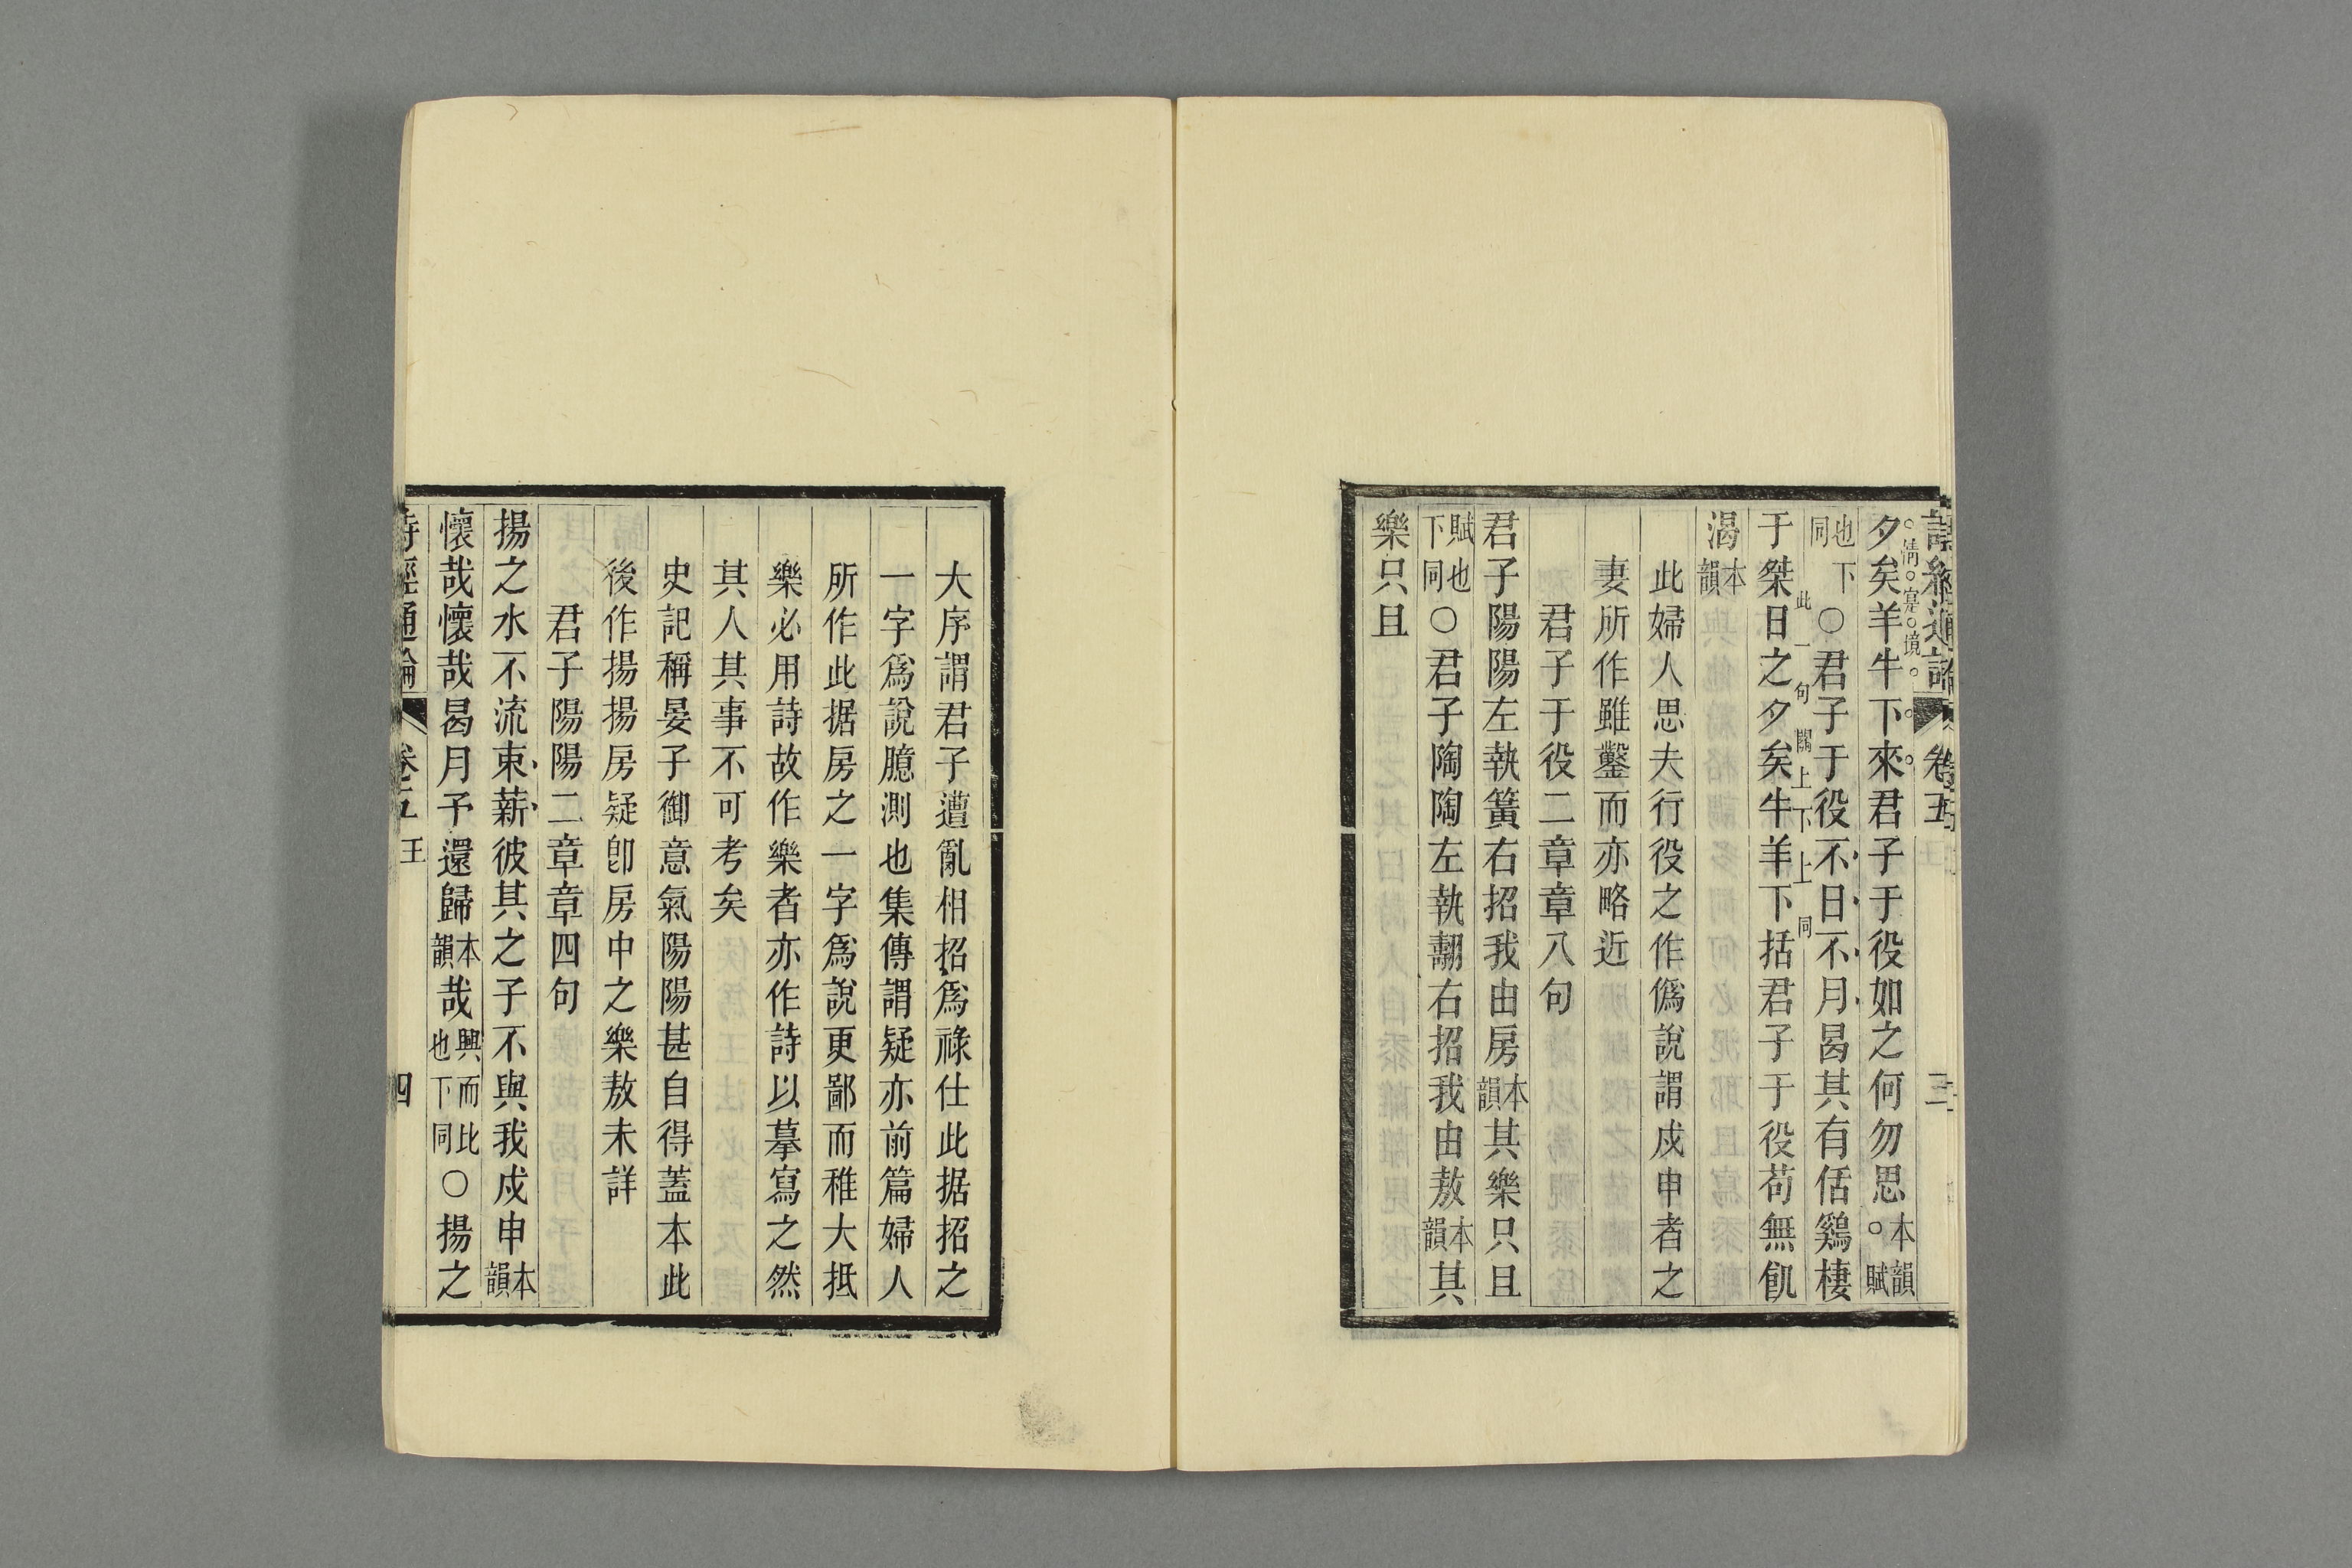 詩經通論 卷五 王 三
情寔境
夕矣羊牛下來君子于役如之何勿思本韻賦
也下同○君子于役不日不月曷其有佸鷄棲
此一句關上下上同
于桀日之夕矣牛羊下括君子于役苟無飢
渴本韻
此婦人思夫行役之作僞說謂戍申者之
妻所作雖鑿而亦略近
君子于役二章章八句
君子陽陽左執簧右招我由房本韻其樂只且
賦也下同○君子陶陶左執翿右招我由敖本韻其
樂只且
大序謂君子遭亂相招爲祿仕此据招之
一字爲說臆測也集傳謂疑亦前篇婦人
所作此据房之一字爲說更鄙而稚大抵
樂必用詩故作樂者亦作詩以摹寫之然
其人其事不可考矣
史記稱晏子御意氣陽陽甚自得蓋本此
後作揚揚房疑卽房中之樂敖未詳
君子陽陽二章章四句
揚之水不流束薪彼其之子不與我戍申本韻
懷哉懷哉曷月予還歸本韻哉興而比也下同○揚之
詩經通論 卷五 王 四